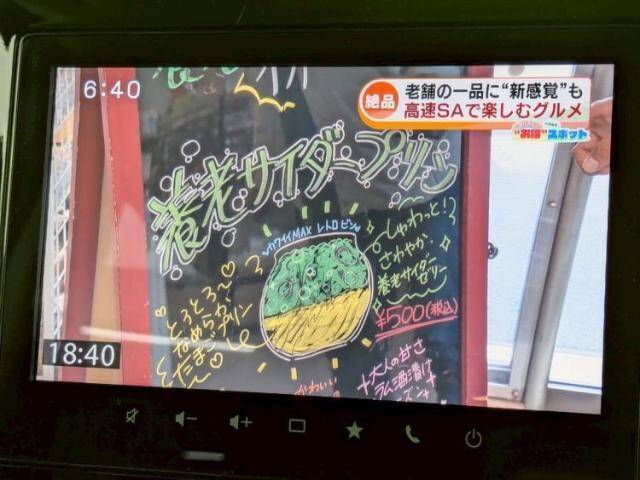 6:40
絶品
老舗の一品に"新感覚"も
高速SAで楽しむグルメ
"お得"スポット
養老サイダープリン
カワイイMAX レトロビン
しゅわっと!
さわやか
養老サイダー
ゼリー
¥500(税込)
とろとろ〜♡
なめらか
たまごプリン
大人の甘さ
ラム酒漬け
かわいい
18:40